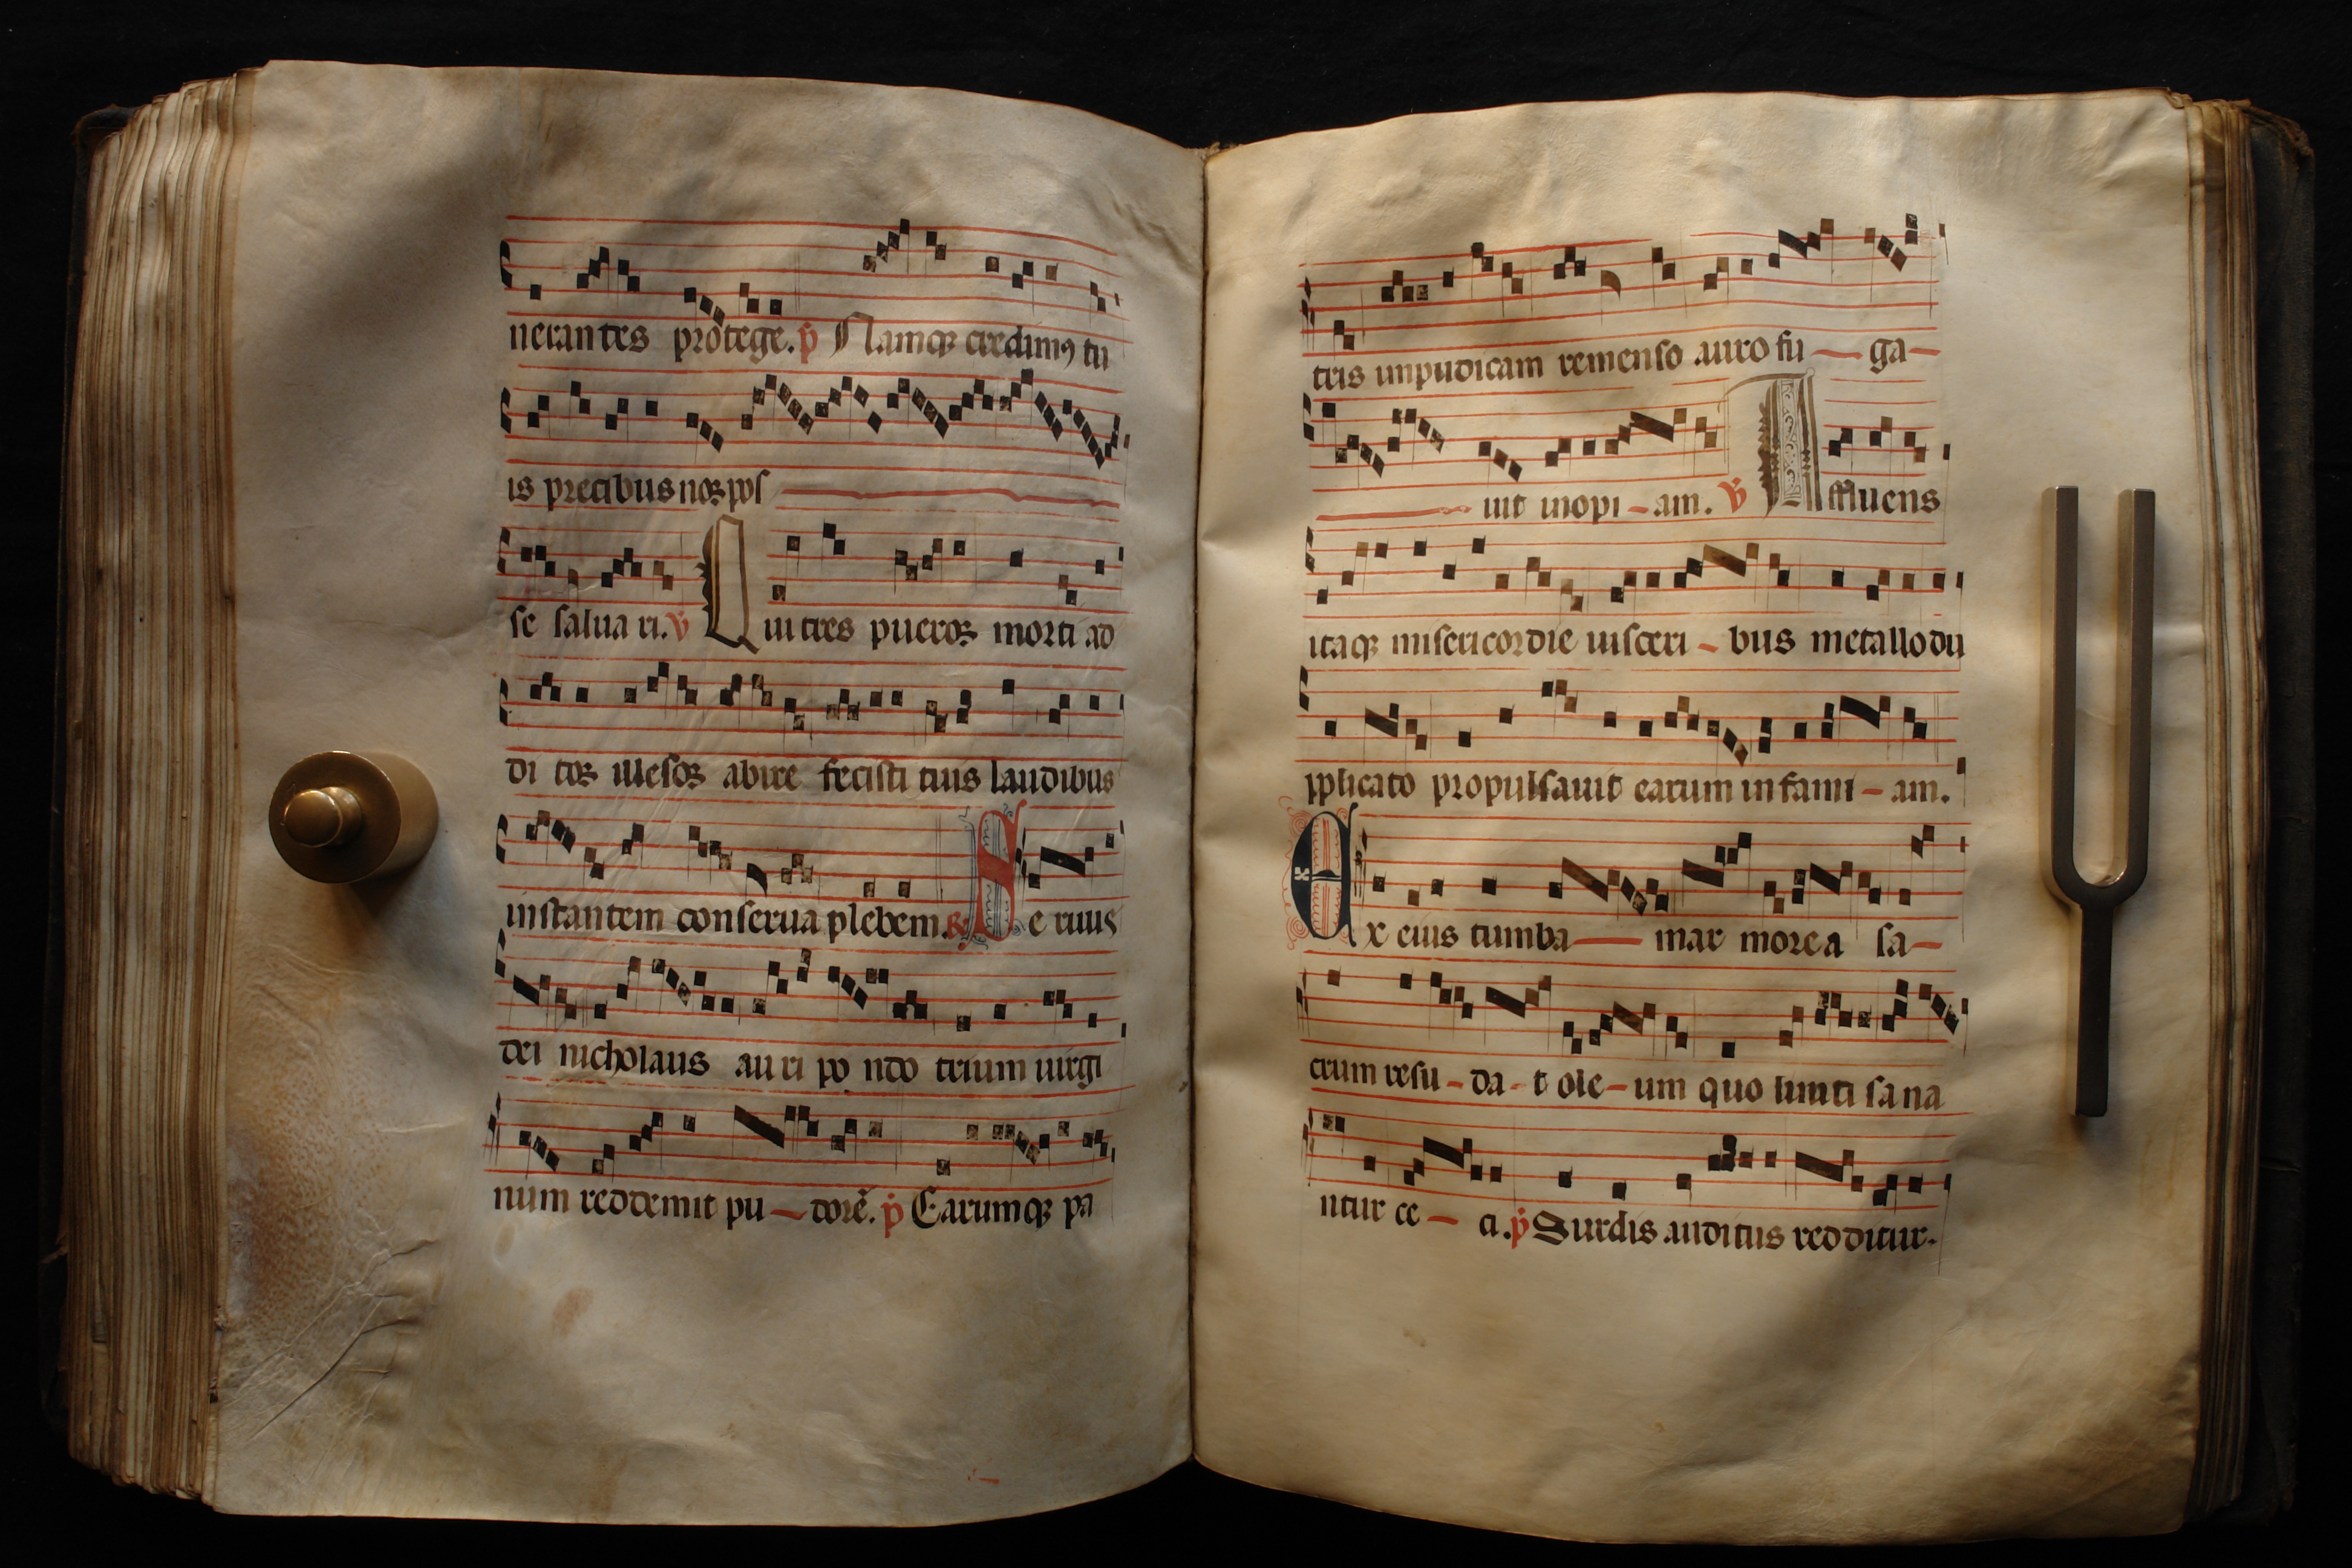 nerantes protege. p Namqꝫ credimꝰ tu
is precibus noꝝ pos
se salua ri. v Qui tres pueroꝝ morti ad
di toꝝ illesoꝝ abire fecisti tuis laudibus
instantem conserua plebem. R Seruus
dei nicholaus auri po ndo trium uirgi
num reddemit pu dorē. p Earumqꝫ pa
tris inpudicam remenso auro fu ga
uit inopi am. v Affluens
itaqꝫ misericordie uisceri bus metallo du
pplicato propulsauit earum infami am.
Ex eius tumba mar morea sa
crum resu da t ole um quo liniti sana
ntur ce ci. p Surdis auditus redditur.